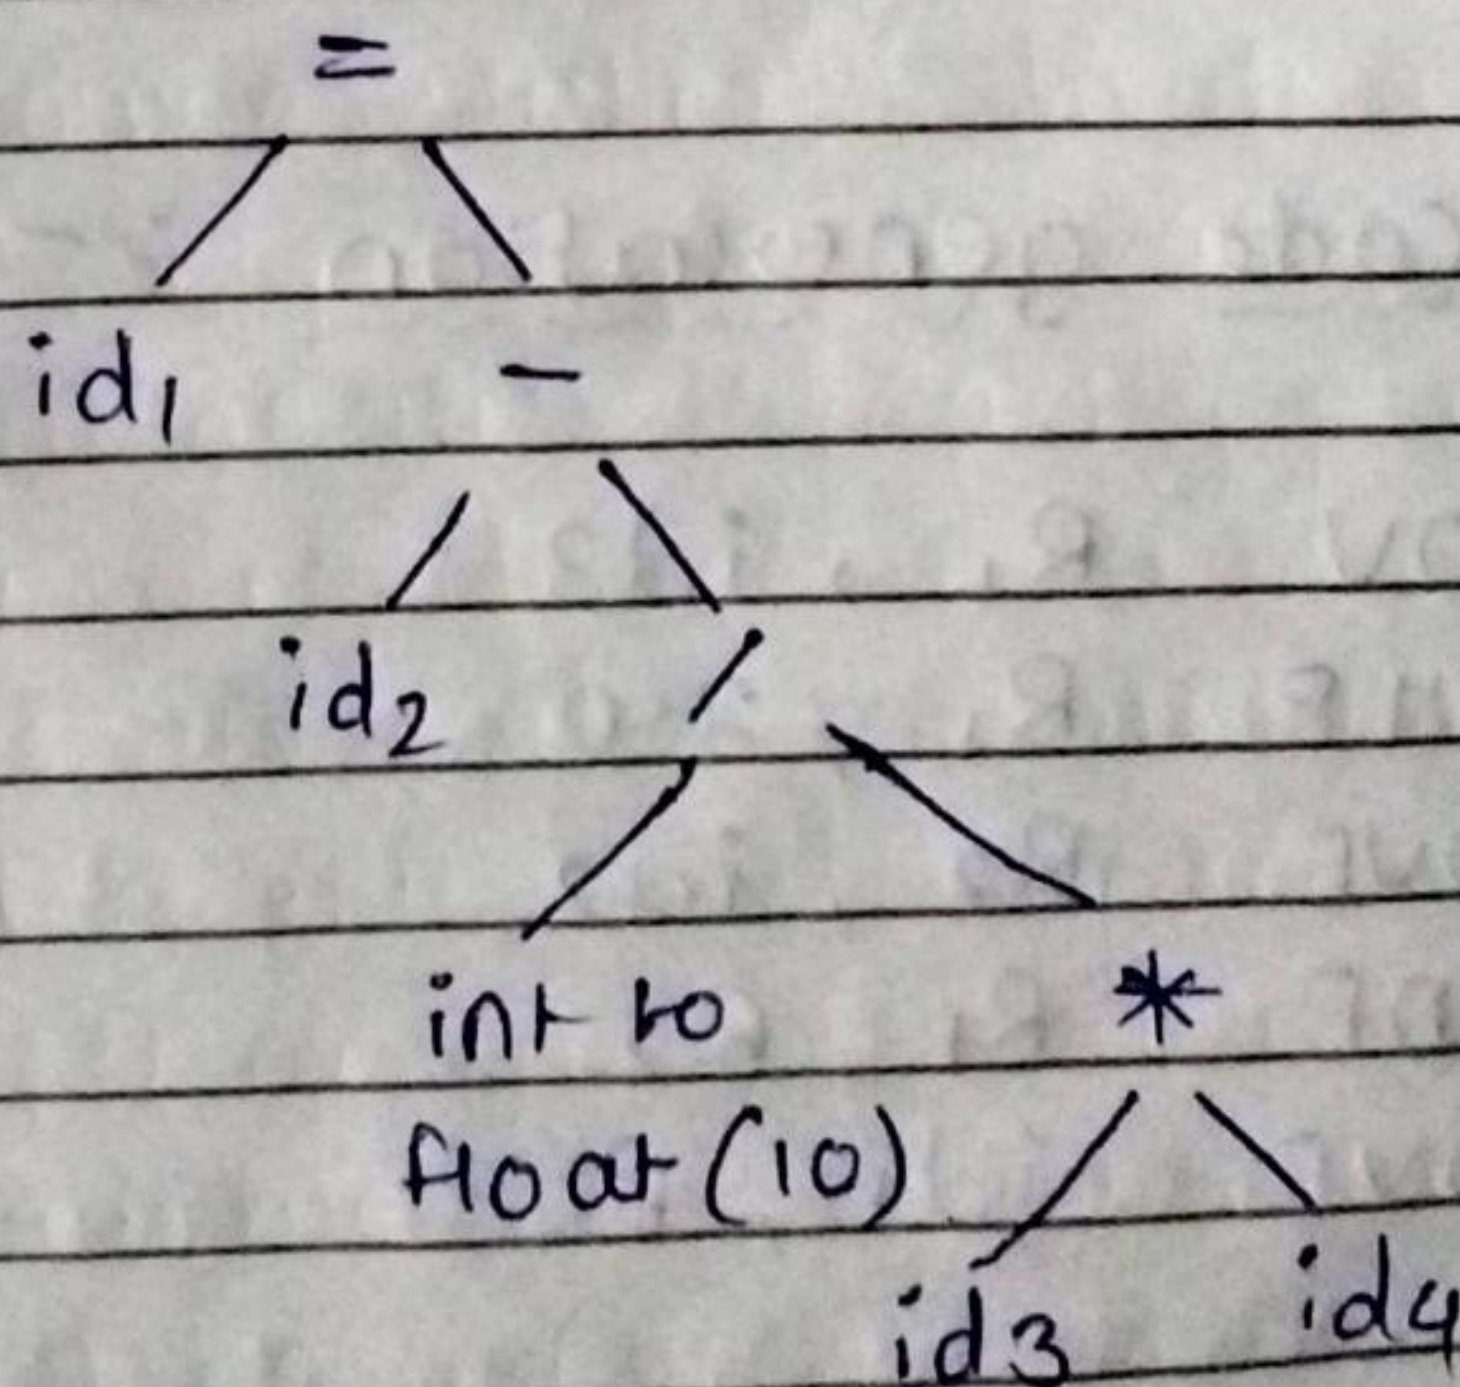 =
id1 -
id2 /
int to *
float (10)
id3 id4